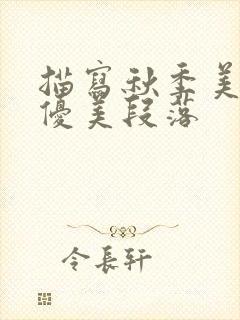 描寫秋季美
優美段落
令長軒